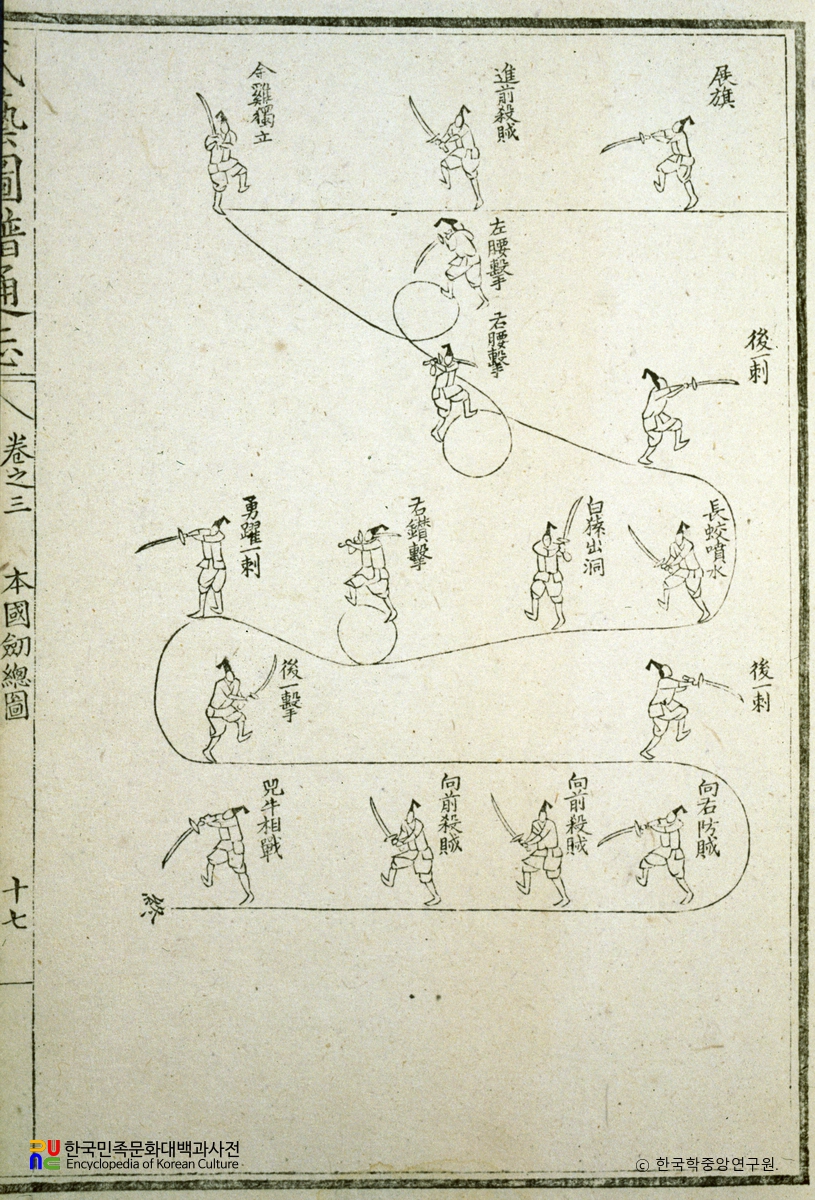 展旗
進前殺賊
金雞獨立
左腰擊
右腰擊
後一刺
長蛟噴水
白猿出洞
右鑽擊
勇躍一刺
後一擊
後一刺
向右防賊
向前殺賊
向前殺賊
兕牛相戰
終
武藝圖譜通志
卷之三
本國劍總圖
十七
한국민족문화대백과사전
Encyclopedia of Korean Culture
© 한국학중앙연구원.